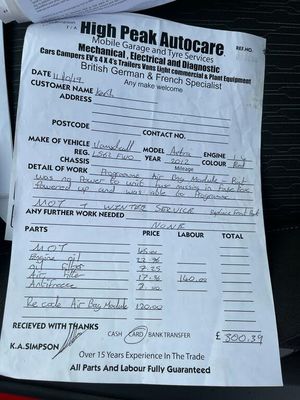 High Peak Autocare.
REF.NO.
Mobile Garage and Tyre Services
Mechanical, Electrical and Diagnostic
Cars Campers EV's 4 X 4's Trailers Vans Light commercial & Plant Equipment
British German & French Specialist
Any make welcome
DATE 11/10/19
CUSTOMER NAME
ADDRESS
POSTCODE
CONTACT NO.
MAKE OF VEHICLE Vauxhall MODEL Astra ENGINE
REG. YEAR 2012 COLOUR Red
CHASSIS Mileage
DETAIL OF WORK Programme Air Bag Module - But
was no Power to unit fuse missing in fuse box
Powered up and was able to Programme
MOT & WINTER SERVICE
ANY FURTHER WORK NEEDED NONE
PARTS PRICE LABOUR TOTAL
MOT
Engine oil
oil filter 7.25
Air filter 140.00
Antifreeze
Re code Air Bag Module 120.00
RECIEVED WITH THANKS
CASH CARD BANK TRANSFER £ 300.39
K.A.SIMPSON
Over 15 Years Experience In The Trade
All Parts And Labour Fully Guaranteed